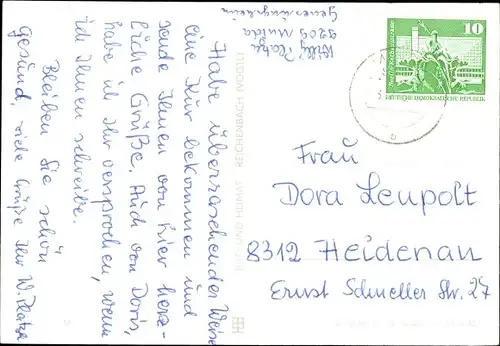 Habe überraschender Weise
eine Kur bekommen und
sende Ihnen von hier herz-
liche Grüße. Auch von Doris,
habe ich Ihr versprochen, wenn
ich Ihnen schreibe.
Bleiben Sie schön
gesund, viele Grüße Ihr W. Platze
Willy Platze
9209 Mulda
Genesungsheim
BILD UND HEIMAT REICHENBACH (VOGTL)
10
DEUTSCHE DEMOKRATISCHE REPUBLIK
Frau
Dora Leupolt
8312 Heidenau
Ernst Schneller Str. 27